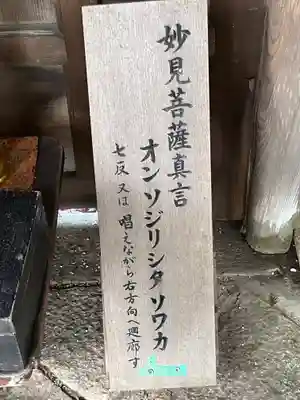 妙見菩薩真言
オンソジリシタソワカ
七反又は唱えながら右方向へ廻廊す
の